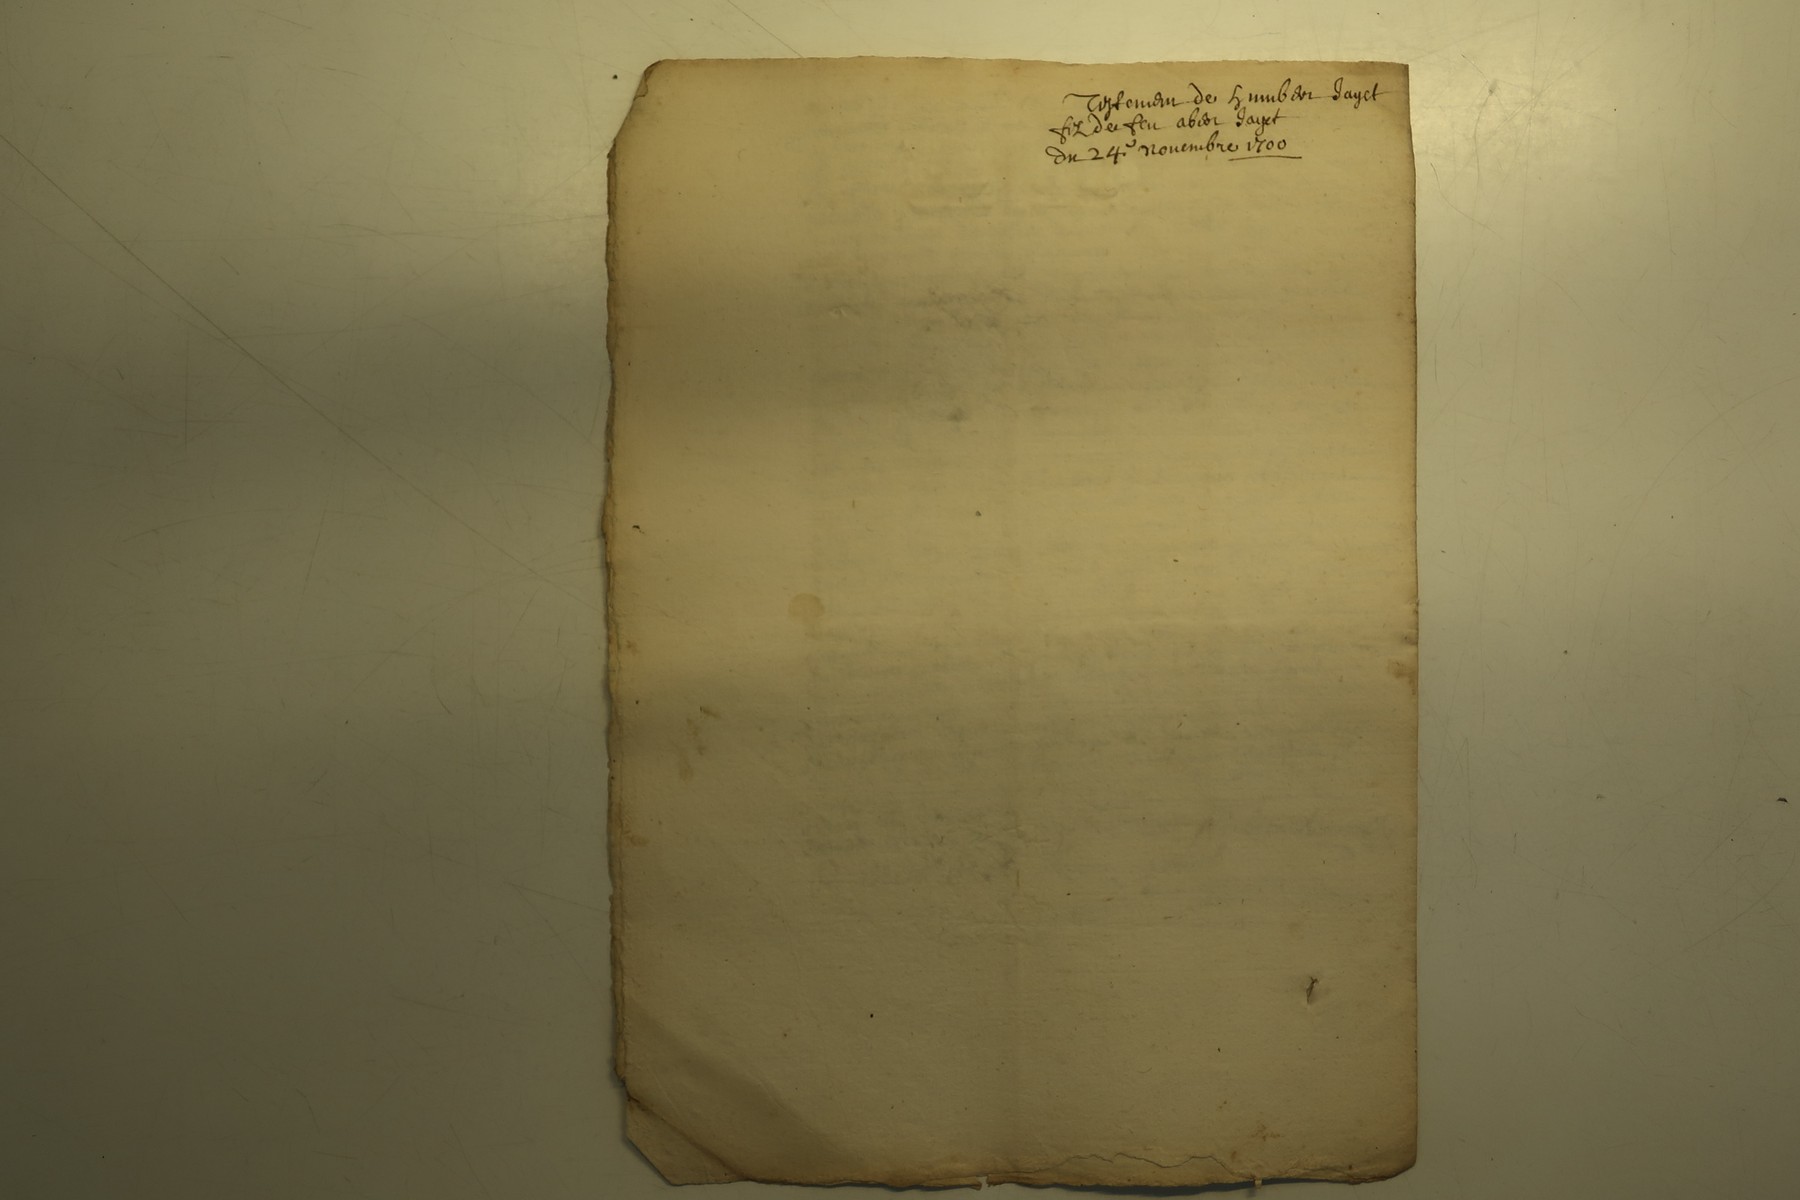 Testemen de humber Jayet
filz de feu aber Jayet
du 24e Novembre 1700